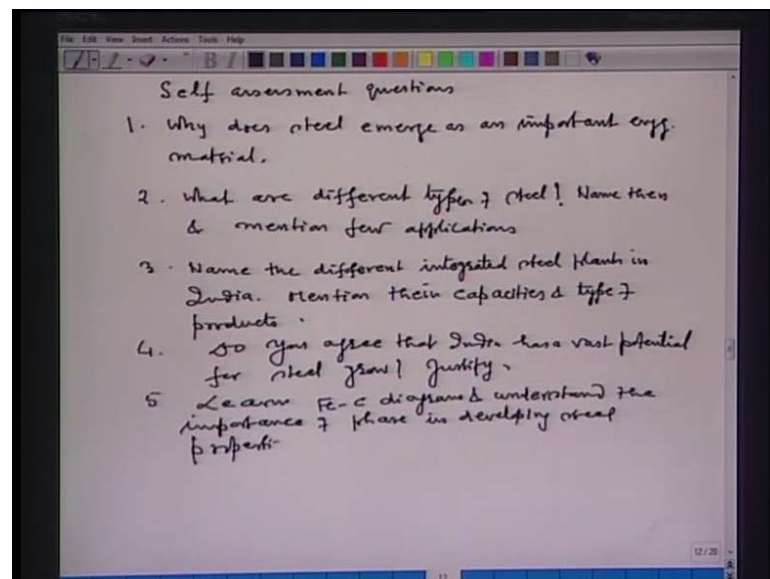 File Edit View Insert Actions Tools Help
Self assessment questions
1. Why does steel emerge as an important engg.
material.
2. What are different types of steel? Name them
& mention few applications
3. Name the different integrated steel plants in
India. Mention their capacities & type of
products.
4. Do you agree that India has a vast potential
for steel grow? Justify.
5 Learn Fe-C diagram & understand the
importance of phase in developing steel
properti
12/20